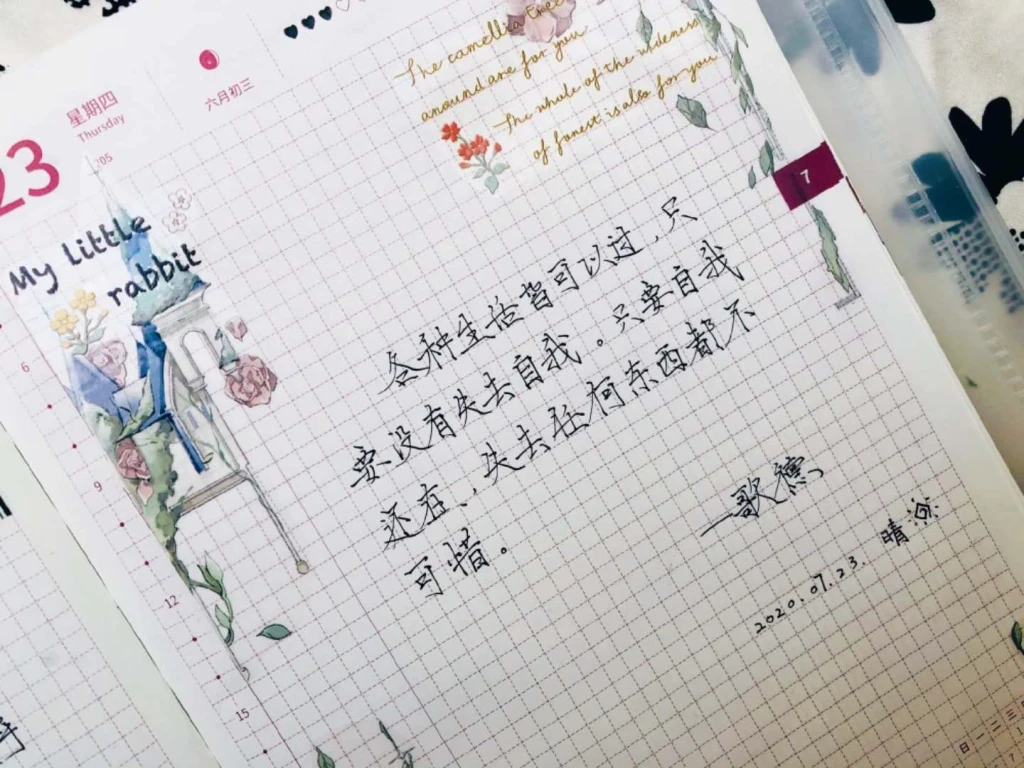 23
星期四
Thursday
205
六月初三
The camellia tree
around are for you
The whole of the wideness
of forest is also for you
7
My Little
rabbit
各种生活皆可以过,只
要没有失去自我。只要自我
还在、失去任何东西都不
可惜。
—歌德
2020.07.23.
6
9
12
15
日 一 二 三